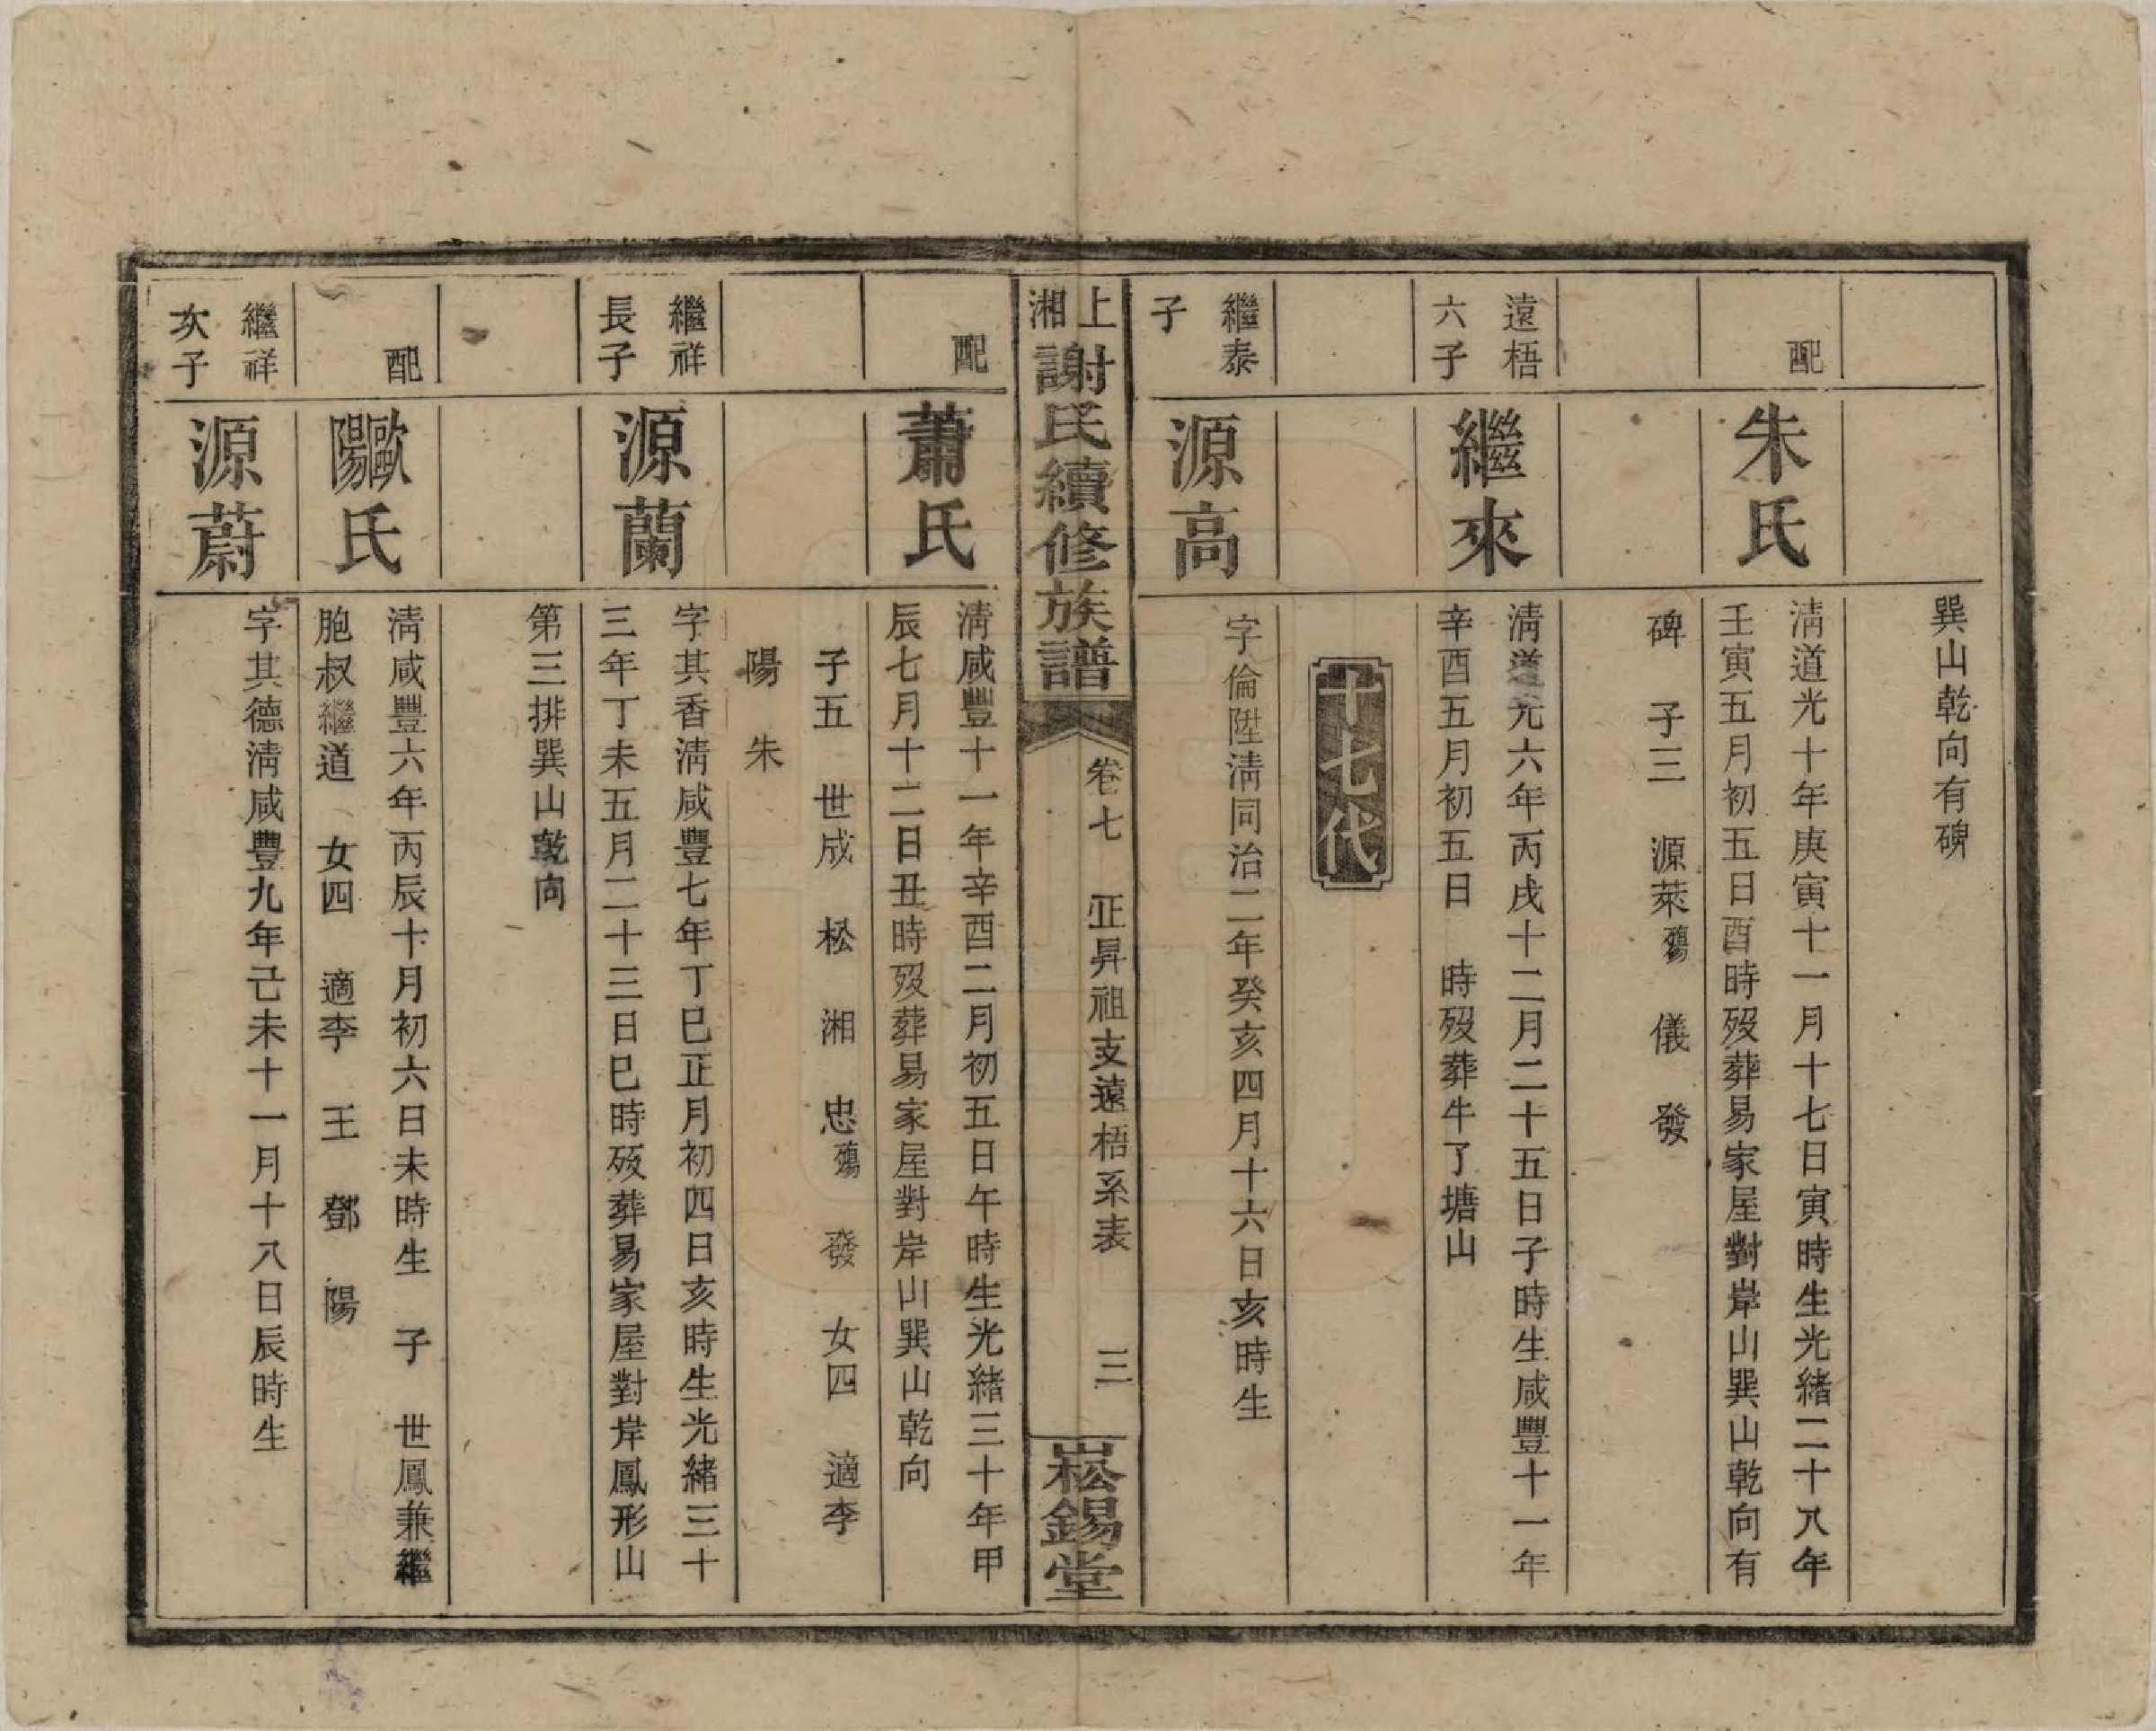 巽山乾向有碑
配
朱氏
清道光十年庚寅十一月十七日寅時生光緒二十八年
壬寅五月初五日酉時歿葬易家屋對岸山巽山乾向有
碑　子三　源萊殤　儀　發
遠梧
六子
繼來
清道光六年丙戌十二月二十五日子時生咸豐十一年
辛酉五月初五日　時歿葬牛了塘山
十七代
繼泰
子
源高
字倫陞清同治二年癸亥四月十六日亥時生
上湘謝氏續修族譜
卷七　正昇祖支遠梧系表　三
崧錫堂
配
蕭氏
清咸豐十一年辛酉二月初五日午時生光緒三十年甲
辰七月十二日丑時歿葬易家屋對岸山巽山乾向
子五　世成　松　湘　忠殤　發　女四　適李
陽　朱
繼祥
長子
源蘭
字其香清咸豐七年丁巳正月初四日亥時生光緒三十
三年丁未五月二十三日巳時歿葬易家屋對岸鳳形山
第三排巽山乾向
配
歐陽氏
清咸豐六年丙辰十月初六日未時生　子　世鳳兼繼
胞叔繼道　女四　適李　王　鄧　陽
繼祥
次子
源蔚
字其德清咸豐九年己未十一月十八日辰時生